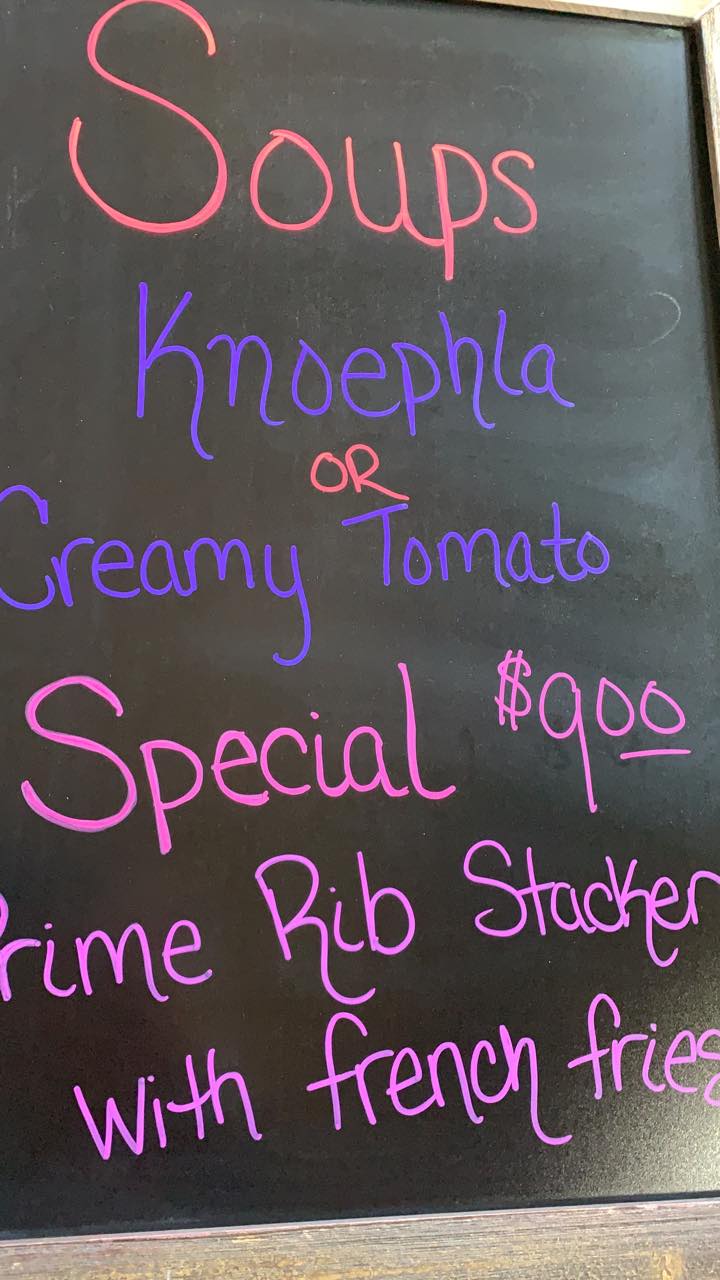 Soups
Knoephla
OR
Creamy Tomato
Special $900
Prime Rib Stacker
with french fries